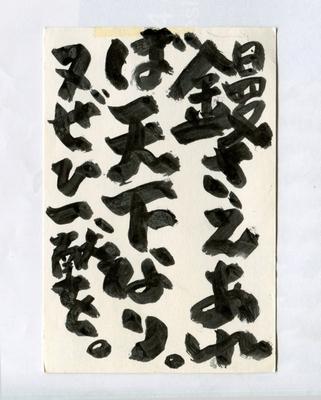 鏝さえあれ
ば天下なり。
又ぜひ一酔を。